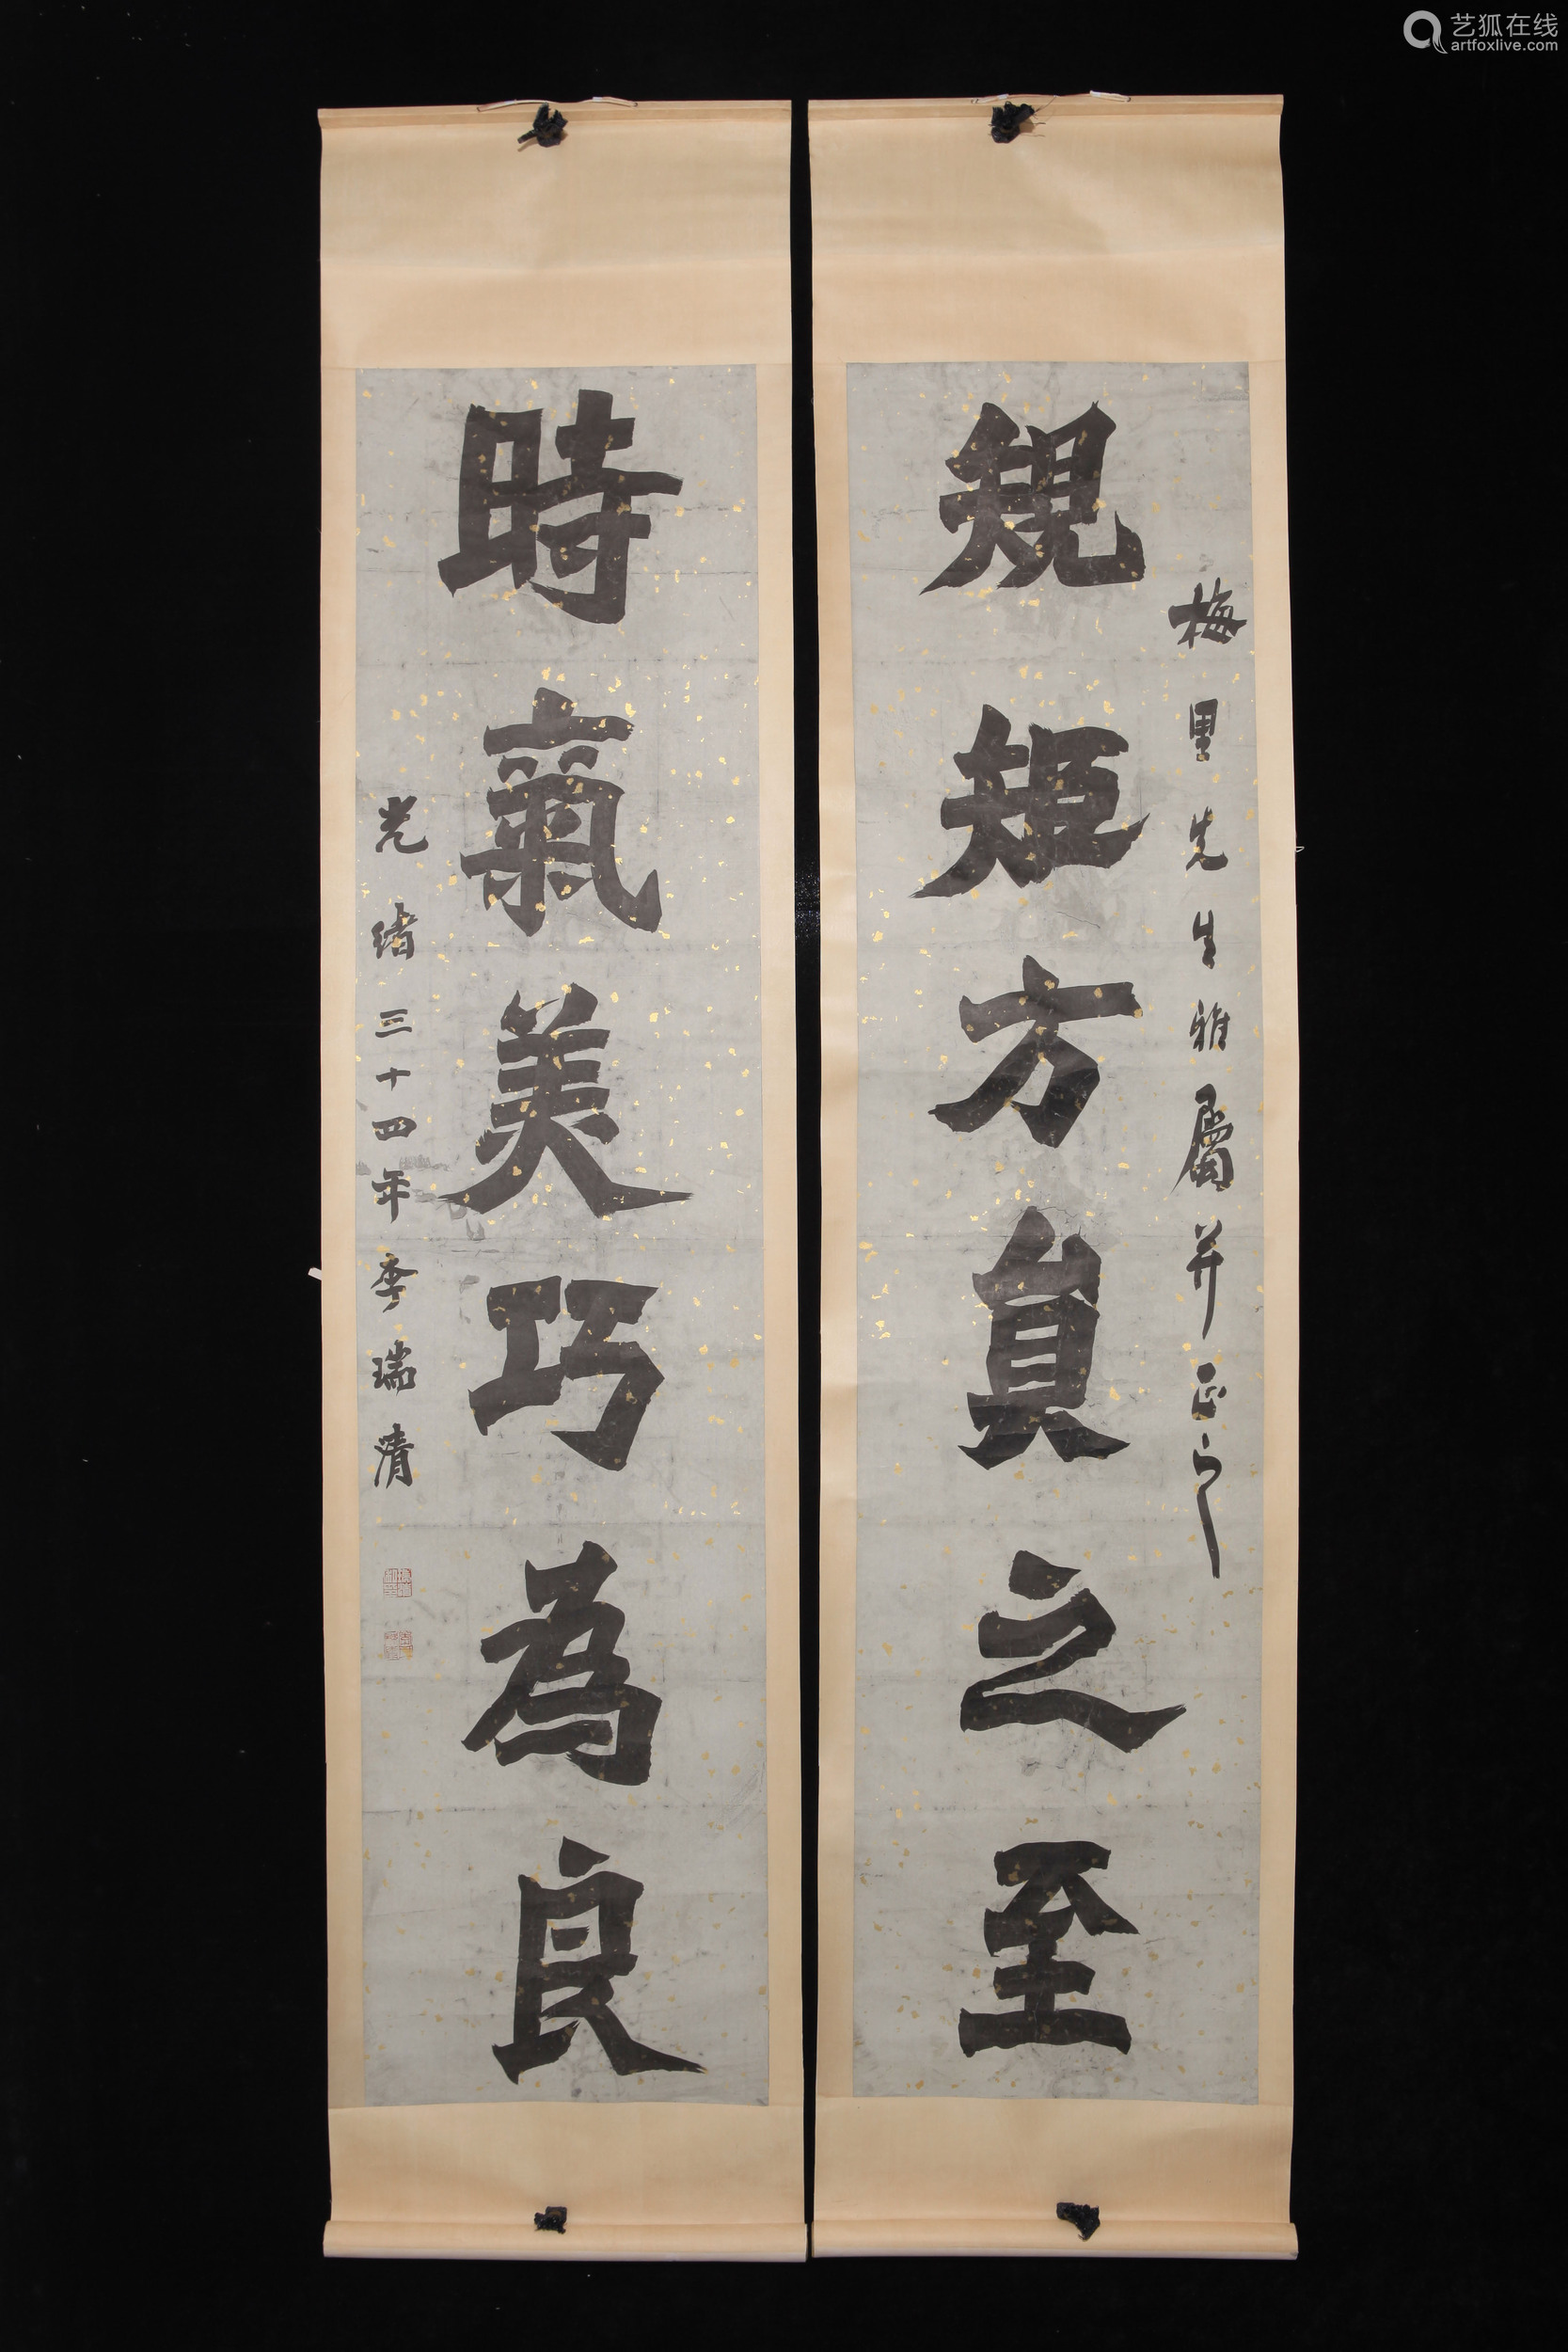 艺狐在线
artfoxlive.com
梅里先生雅屬并正之
規矩方員之至
時氣美巧為良
光緒三十四年李瑞清